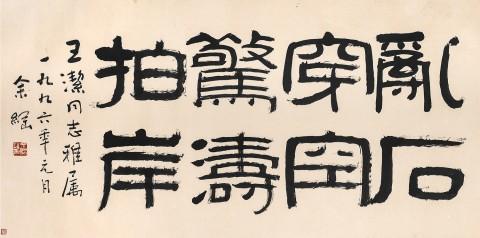 亂石
穿空
驚濤
拍岸
王潔同志雅屬
一九九六年元月
余繩